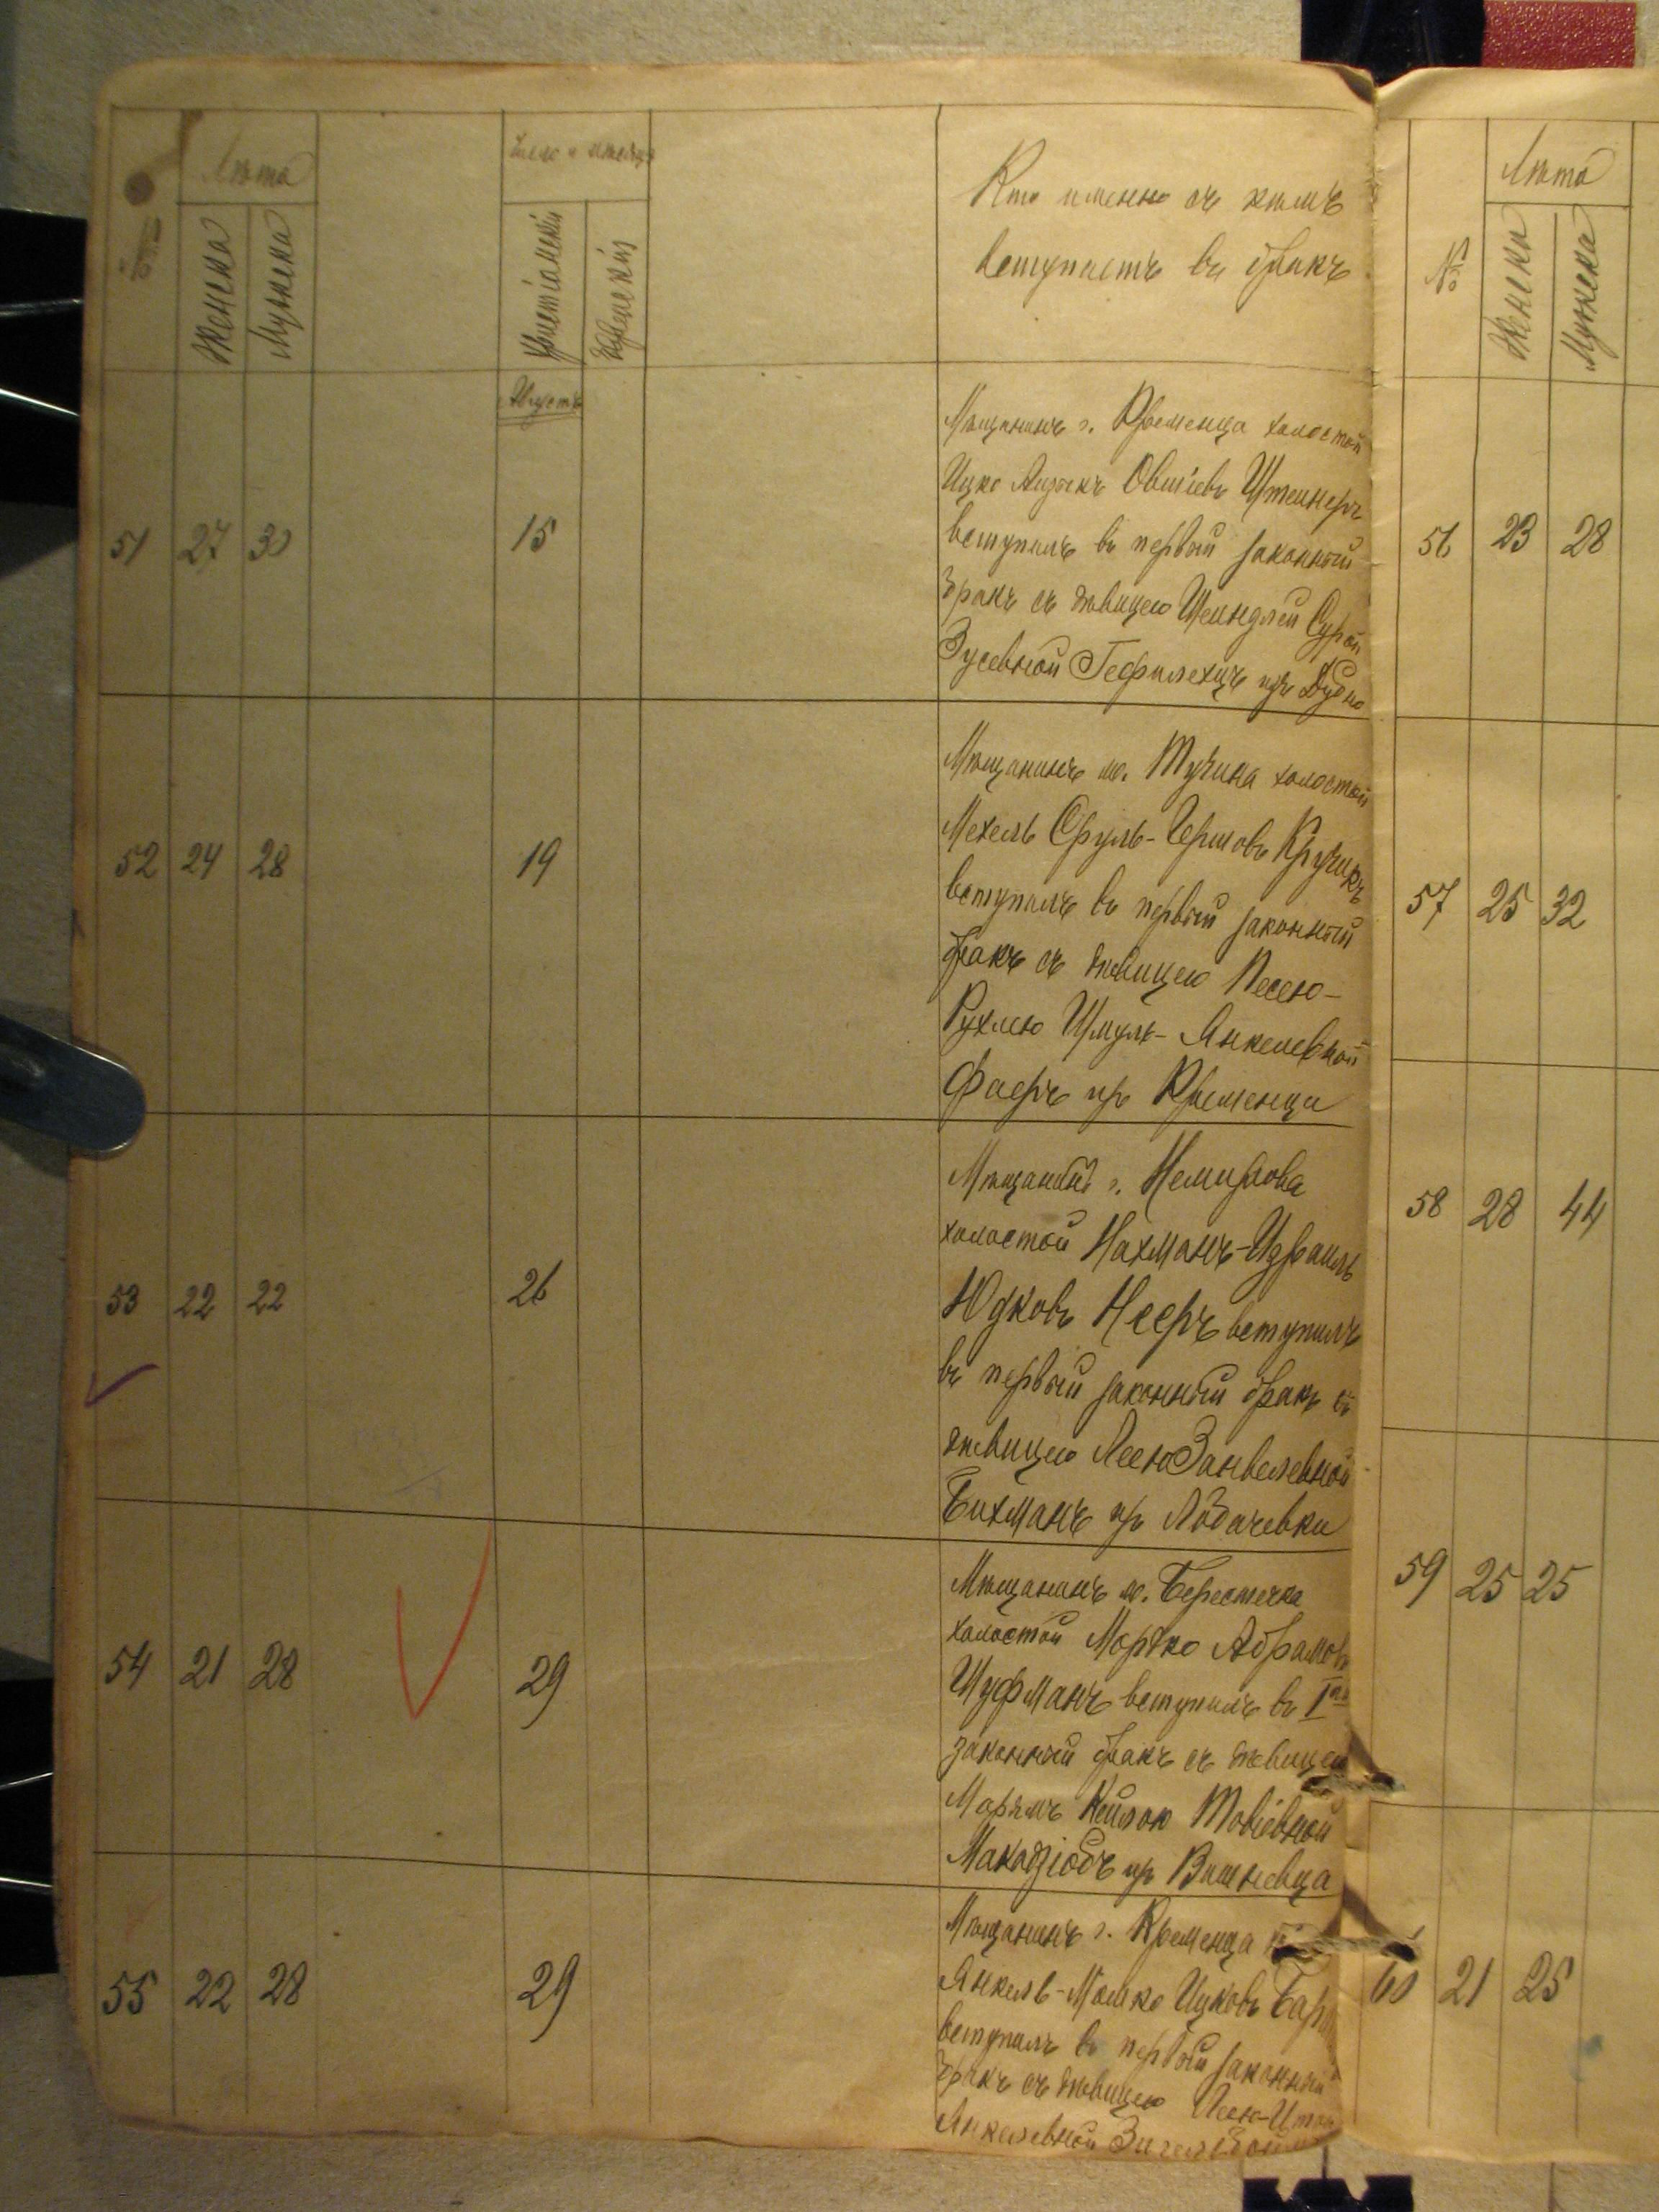 Лѣта
Число и мѣсяцъ
Кто именно съ кѣмъ
вступаетъ въ бракъ
Женска
Мужска
Христіанскій
Еврейскій
Августъ
51 27 30 15
Мѣщанинъ г. Кременца холостой
Ицко Айзикъ Овшіевъ Штейнеръ
вступилъ въ первый законный
бракъ съ дѣвицею Шейндлей Сурой
Зусевной Гефилехцъ изъ Дубно
52 24 28 19
Мѣщанинъ м. Тучина холостой
Мехель Сруль-Гершовъ Кручикъ
вступилъ въ первый законный
бракъ съ дѣвицею Песею-
Рухлею Шмуль-Янкелевной
Фаеръ изъ Кременца
53 22 22 26
Мѣщанинъ г. Немирова
холостой Нахманъ-Израиль
Юдковъ Нееръ вступилъ
въ первый законный бракъ съ
дѣвицею Леею Занвелевной
Бихманъ изъ Лобачевки
54 21 28 29
Мѣщанинъ м. Берестечка
холостой Мордко Абрамовъ
Шуфманъ вступилъ въ I
законный бракъ съ дѣвицею
Марямъ Кейлою Товіевной
изъ Вишневца
55 22 28 29
Мѣщанинъ г. Кременца
Янкель-Мошко Ицковъ
вступилъ въ первый законный
бракъ съ дѣвицею
Янкелевной
№
Лѣта
Женска
Мужска
56 23 28
57 25 32
58 28 44
59 25 25
60 21 25